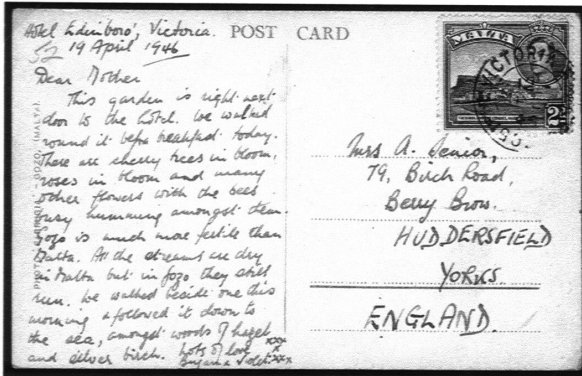 Hotel Edinboro', Victoria.
19 April 1946
Dear Mother
This garden is right next
door to the hotel. We walked
round it before breakfast today.
There are cherry trees in bloom,
roses in bloom and many
other flowers with the bees
busy humming amongst them.
Gozo is much more fertile than
Malta. All the streams are dry
in Malta but in Gozo they still
run. We walked beside one this
morning & followed it down to
the sea, amongst woods of hazel
and silver birch. Lots of love xxx
xxx
POST CARD
GOZO, (MALTA).
MALTA
VICTORIA
2
Mrs A. Senior,
79, Birch Road,
Berry Brow.
HUDDERSFIELD
YORKS.
ENGLAND.